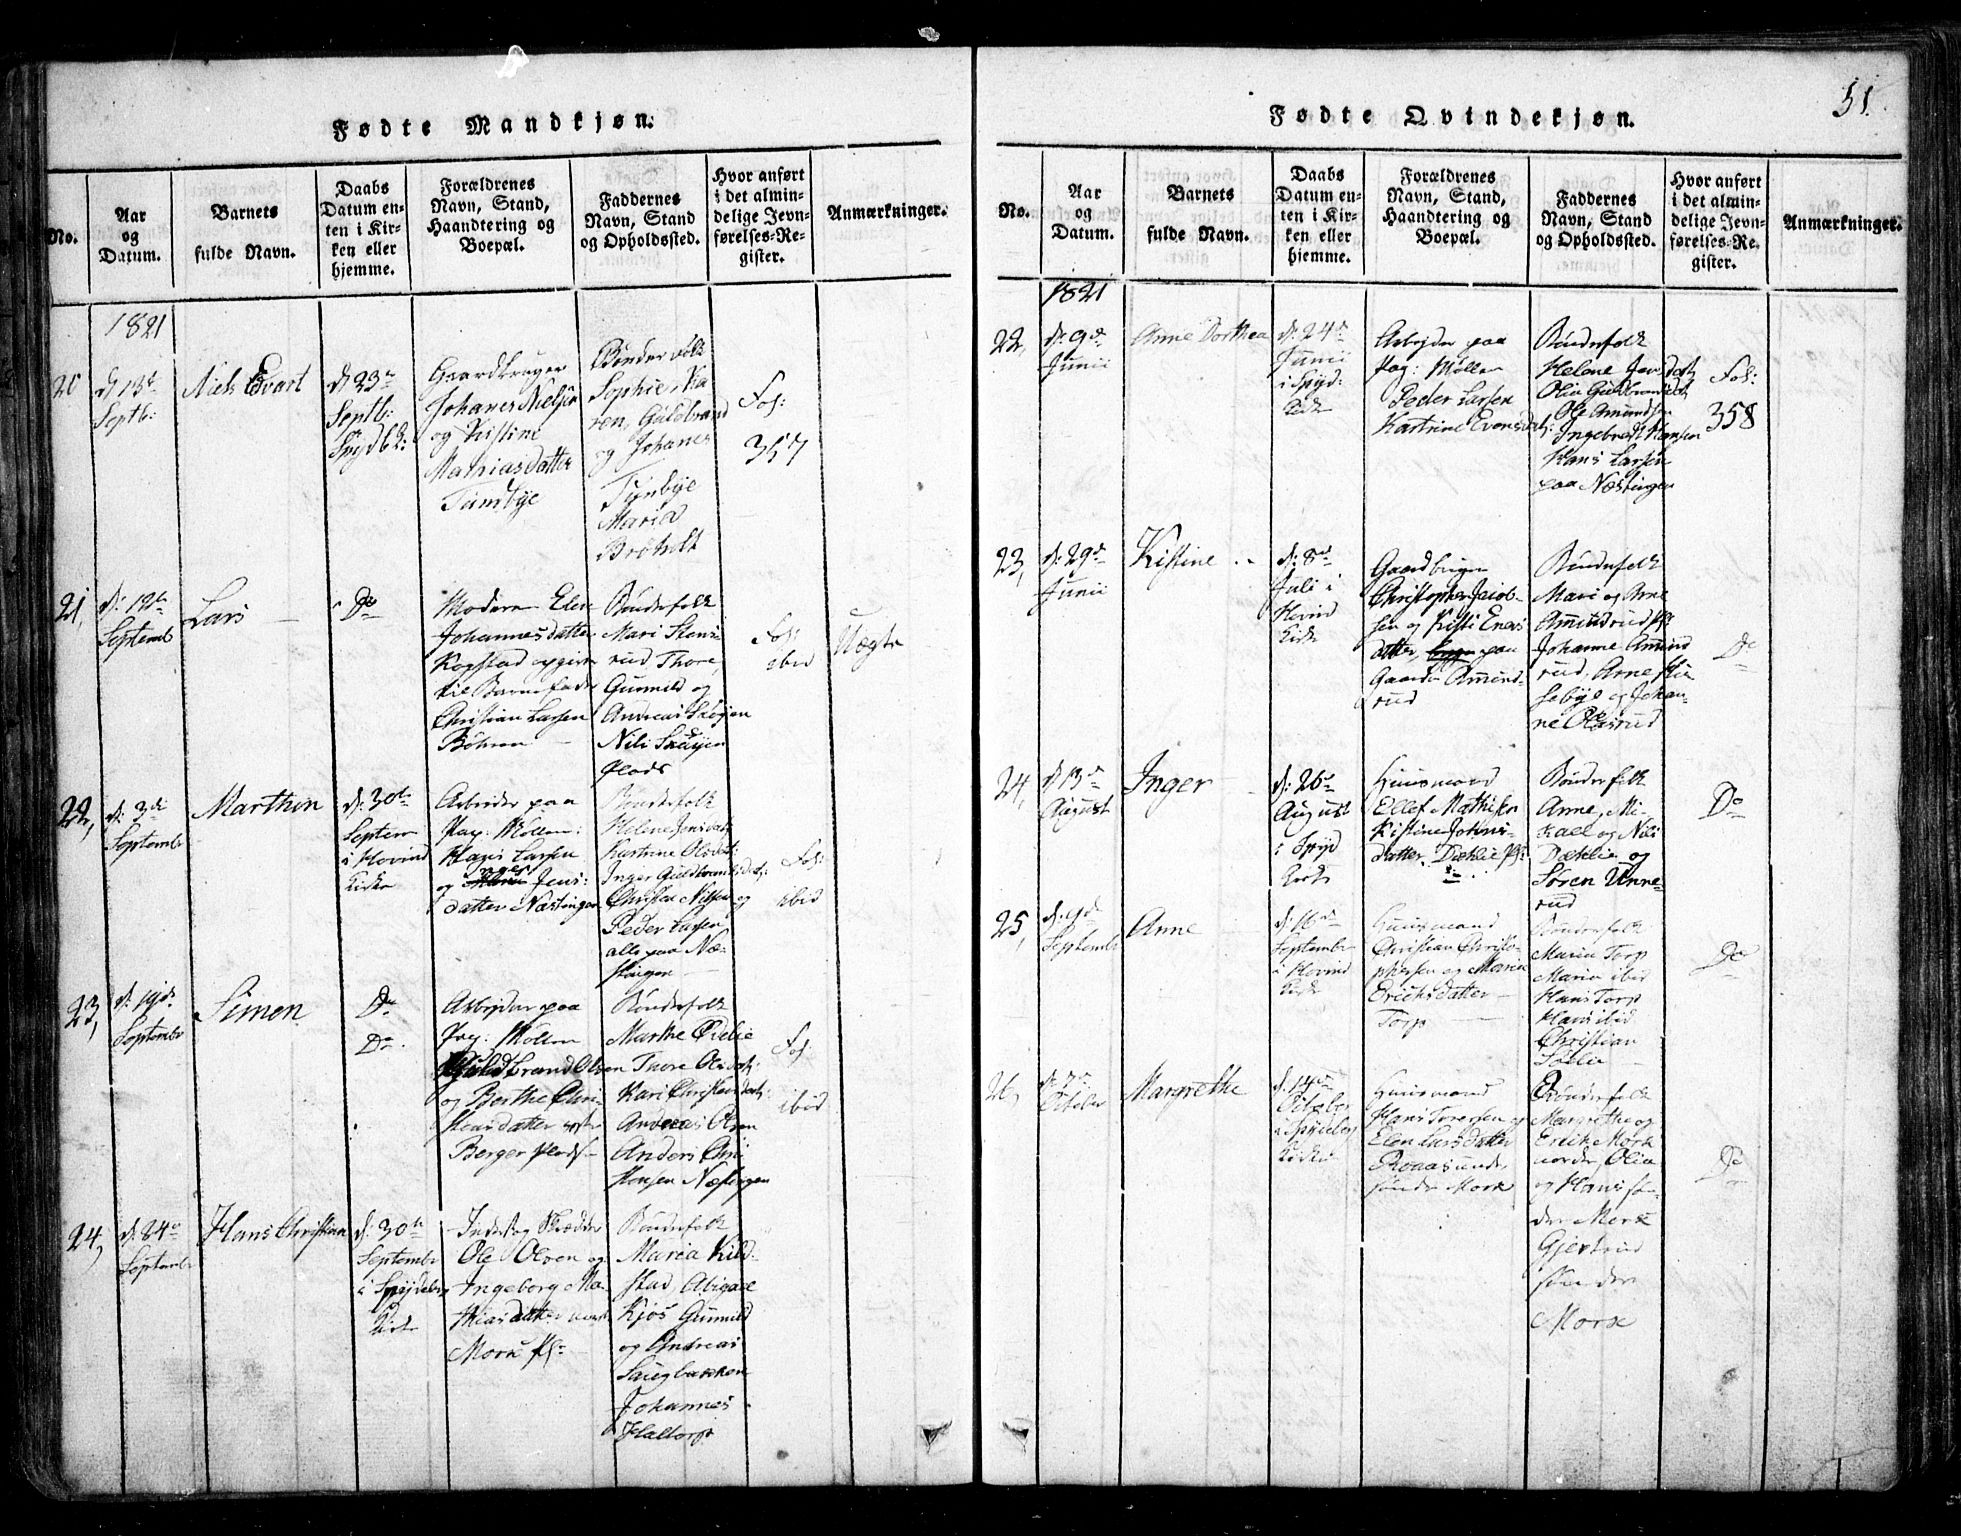 51.
Fødte Mandkjøn.
No.
Aar
og
Datum.
Barnets
fulde Navn.
Daabs
Datum en-
ten i Kir-
ken eller
hjemme.
Forældrenes
Navn, Stand,
Haandtering og
Boepæl.
Faddernes
Navn, Stand
og Opholdssted.
Hvor anført
i det almin-
delige Jevn-
førelses-Re-
gister.
Anmærkninger.
1821
d 13de
Septb:
Niels Evart
d 23de
Septb:
Gaardbruger
Johanes Nielsen
og Kistine
Mathiasdatter
Tumbye
Bønderfolk
Sophie, Ka
ren, Guldbrand
og Johanes
Tynbye
Maria
Brøholt
Fol:
357
21,
d: 12te
Septemb
Lars
Do
Moderen Elen
Johannesdatter
Kogstad opgiven
til Barnefader
Christian Larsen
Bøhren
Bønderfolk
Mari Stens-
rud, Thore,
Gunnild og
Andreas Skøyen
Nils Skøyen
Plads
Fol:
ibid
Uægte
22,
d: 3die
Septembr
Marthin
d: 30te
Septem
i Hovind
Kirke
Arbeider paa
Pap: Møllen:
Hans Larsen
og Inger Jens-
datter Næstingen
Bønderfolk
Helene Jensdatr
Kartrine Olsdatr:
Inger Guldbrandsdatr:
Christen Nilsen og
Peder Larsen
alle paa Næ-
stingen
Fol:
ibid
23,
d: 19de
Septembr
Simon
Do
Do.
Arbejder paa
Pap: Møllen
Guldbrand Olsen
og Berthe Chri-
stensdatter
Berger Plads
Bønderfolk
Marthe
Thore Olsdatr:
Kari Christensdatr:
Andreas Olsen
Anders Chri
stensen Næstingen
Fol:
ibid
24,
d: 24de
Septembr
Hans Christian
d: 30te
Septembr
i Spydeberg
Kirke
Inderst og Skrædder
Ole Olsen og
Ingeborg Ma-
thiasdatter
Mork Pl:
Bønderfolk
Maria Kild-
stad, Abigael
Kjos Gunnild
og Andreas
Saugbakken
Johannes
Haltorp
Fødte Qvindekjøn.
No.
Aar
og
Datum.
Barnets
fulde Navn.
Daabs
Datum en-
ten i Kir-
ken eller
hjemme.
Forældrenes
Navn, Stand,
Haandtering og
Boepæl.
Faddernes
Navn, Stand
og Opholdssted.
Hvor anført
i det almin-
delige Jevn-
førelses-Re-
gister.
Anmærkninger.
1821
22,
d: 9de
Junii
Anne Dorthea
d: 24de
Junii
i Spyd:
Kirke
Arbejder paa
Pap: Møllen
Peder Larsen
Kartrine Evensdatr:
Bønderfolk
Helene Jensdatr
Olia Guldbrandsdatr
Ole Amundsen
Ingebredt Hansen
Hans Larsen
paa Næstingen
Fol:
358
23,
d: 29de
Junii
Kistine
d: 8de
Juli i
Hovind
Kirke
Gaardbruger
Christopher Jacob-
sen og Kisti Eners
datter, paa
Gaarden Amund-
rud
Bønderfolk
Mari og Arne
Amundrud
Johanne Amund
rud, Arne
sebye og Johan-
ne Olasrud
Do
24,
d 13de
August
Inger
d: 26de
August
i Spyd
Kirke
Huusmand
Ellef Mathisen
Kistine Johns-
datter. Dæhlie Pl:
Bønderfolk
Anne, Mi-
kael og Nils
Dæhlie og
Søren Unne-
rud
Do
25,
d. 9de
Septembr
Anne
d: 16de
Septembr
i Hovind
Kirke
Huusmand
Christian Christo-
phersen og Maria
Erichsdatter
Torp
Bønderfolk
Maria Torp
Maria ibid
Hans Torp
Hans ibid
Christian
Do
26,
October
Margrethe
d: 14de
October
i Spydeberg
Kirke
Huusmand
Hans Torersen og
Elen Larsdatter
Mork
Bønderfolk
Margrethe og
Erich Mork
nordre, Olia
og Hans søn-
dre Mork
Gjertrud
søndre
Mork
Do